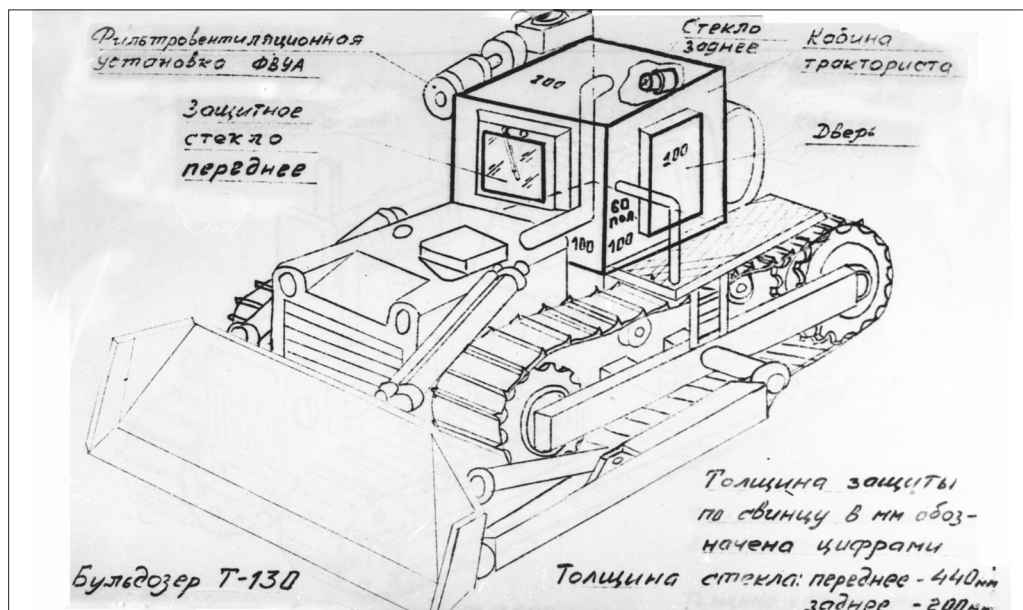 Фильтровентиляционная
установка ФВУА
Защитное
стекло
переднее
Стекло
заднее
Кабина
тракториста
Дверь
200
100
60
пол.
100
100
Толщина защиты
по свинцу в мм обоз-
начена цифрами
Бульдозер Т-130
Толщина стекла: переднее - 440мм
заднее - 200мм